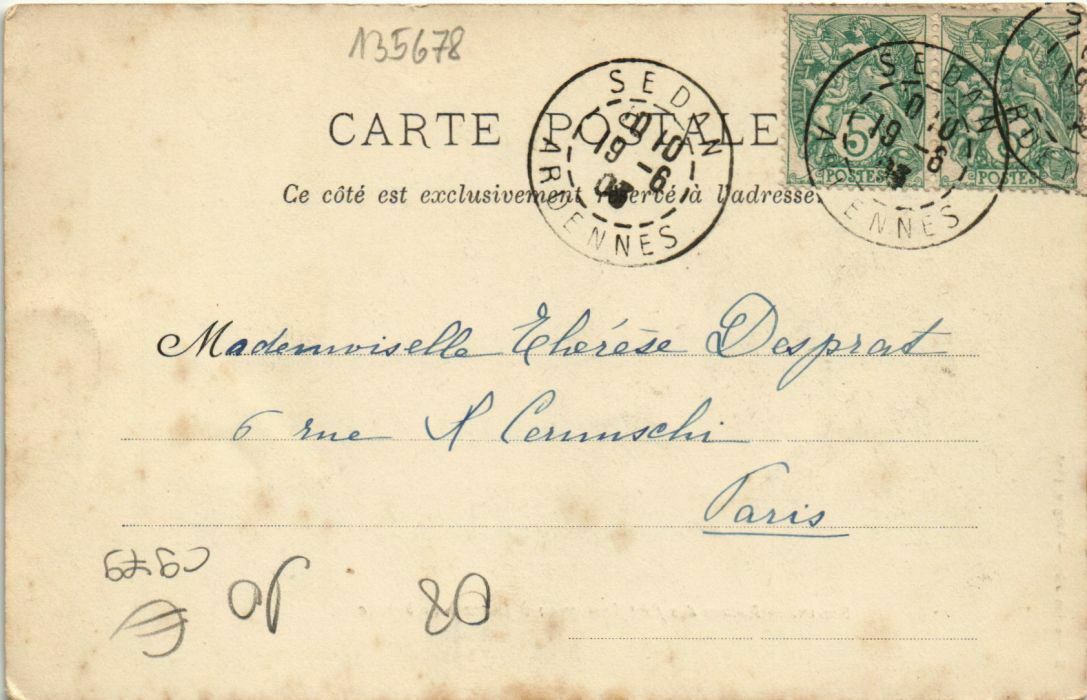 135678
CARTE POSTALE
Ce côté est exclusivement réservé à l'adresse.
SEDAN
10
19 -6
03
ARDENNES
SEDAN
10
19 -6
03
ARDENNES
5
POSTES
POSTES
Mademoiselle Thérèse Desprat
6 rue H Cernuschi
Paris
80